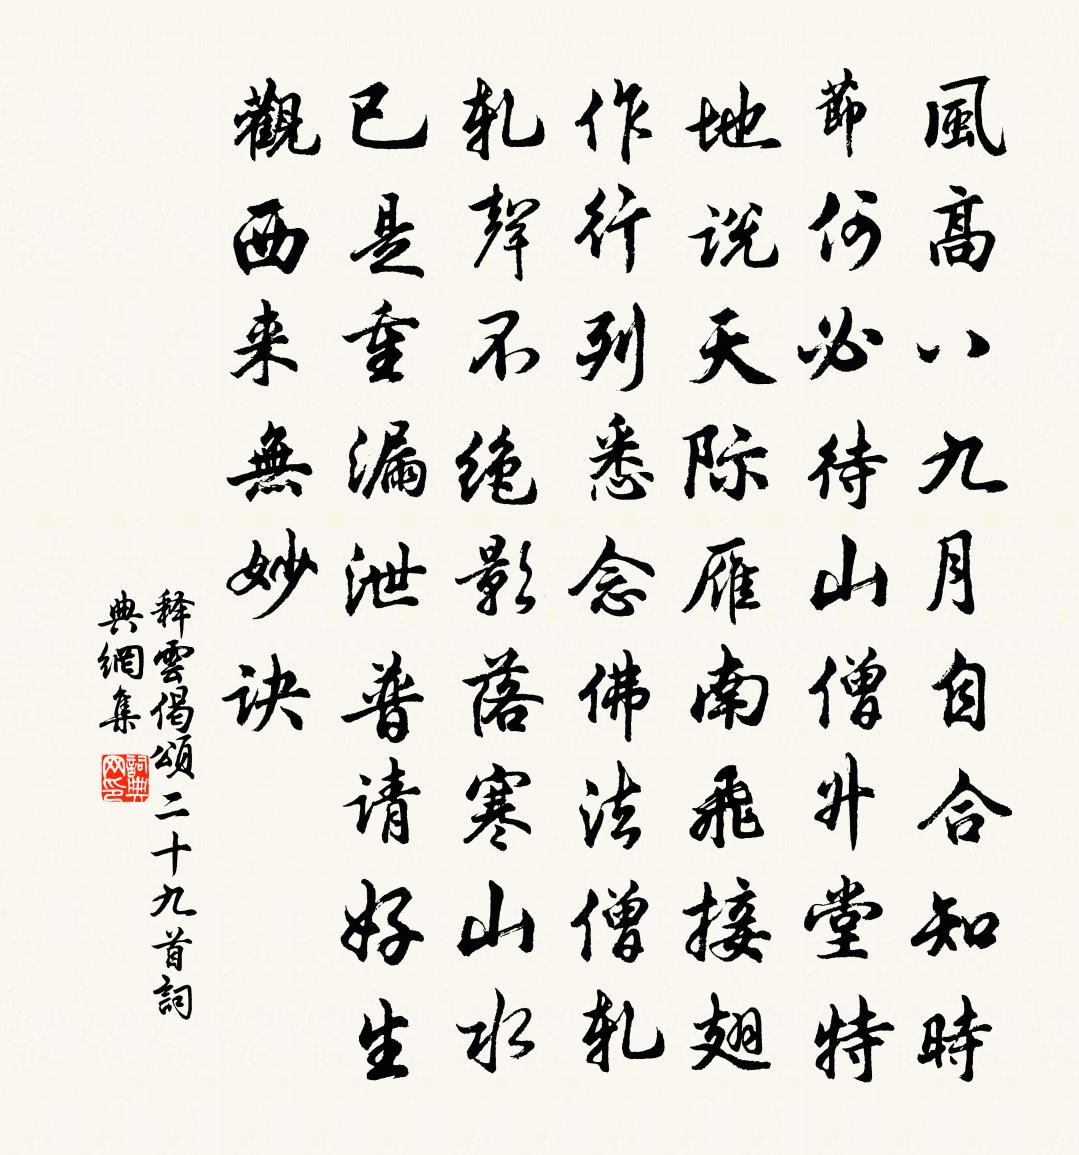 風高八九月自合知時
節何必待山僧升堂特
地说天际雁南飛接翅
作行列悉念佛法僧軋
軋聲不绝影落寒山水
已是重漏泄普请好生
觀西来無妙诀
释雲偈頌二十九首詞
典網集
詞典
网印